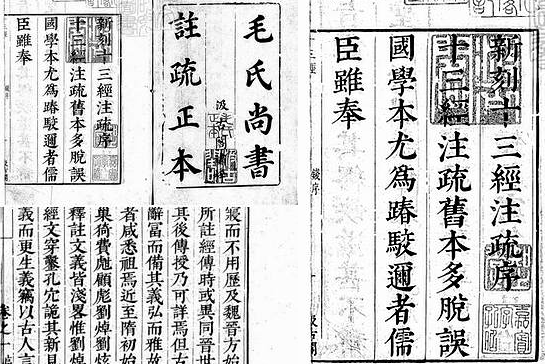 新刻十三經注疏序
十三經注疏舊本多脫誤
國學本尤為踳駁邇者儒
臣雖奉
毛氏尚書
註疏正本
汲古閣
新刻十三經注疏序
十三經注疏舊本多脫誤
國學本尤為踳駁邇者儒
臣雖奉
而不用歷及魏晉方始
所註經傳時或異同晉世
其後傳授乃可詳焉但古
辭富而備其義弘而雅故
者咸悉祖焉近至隋初始
巢猗費甝顧彪劉焯劉炫
釋註文義皆淺畧惟劉焯
經文穿鑿孔穴詭其新見
義而更生義竊以古人言
卷之一